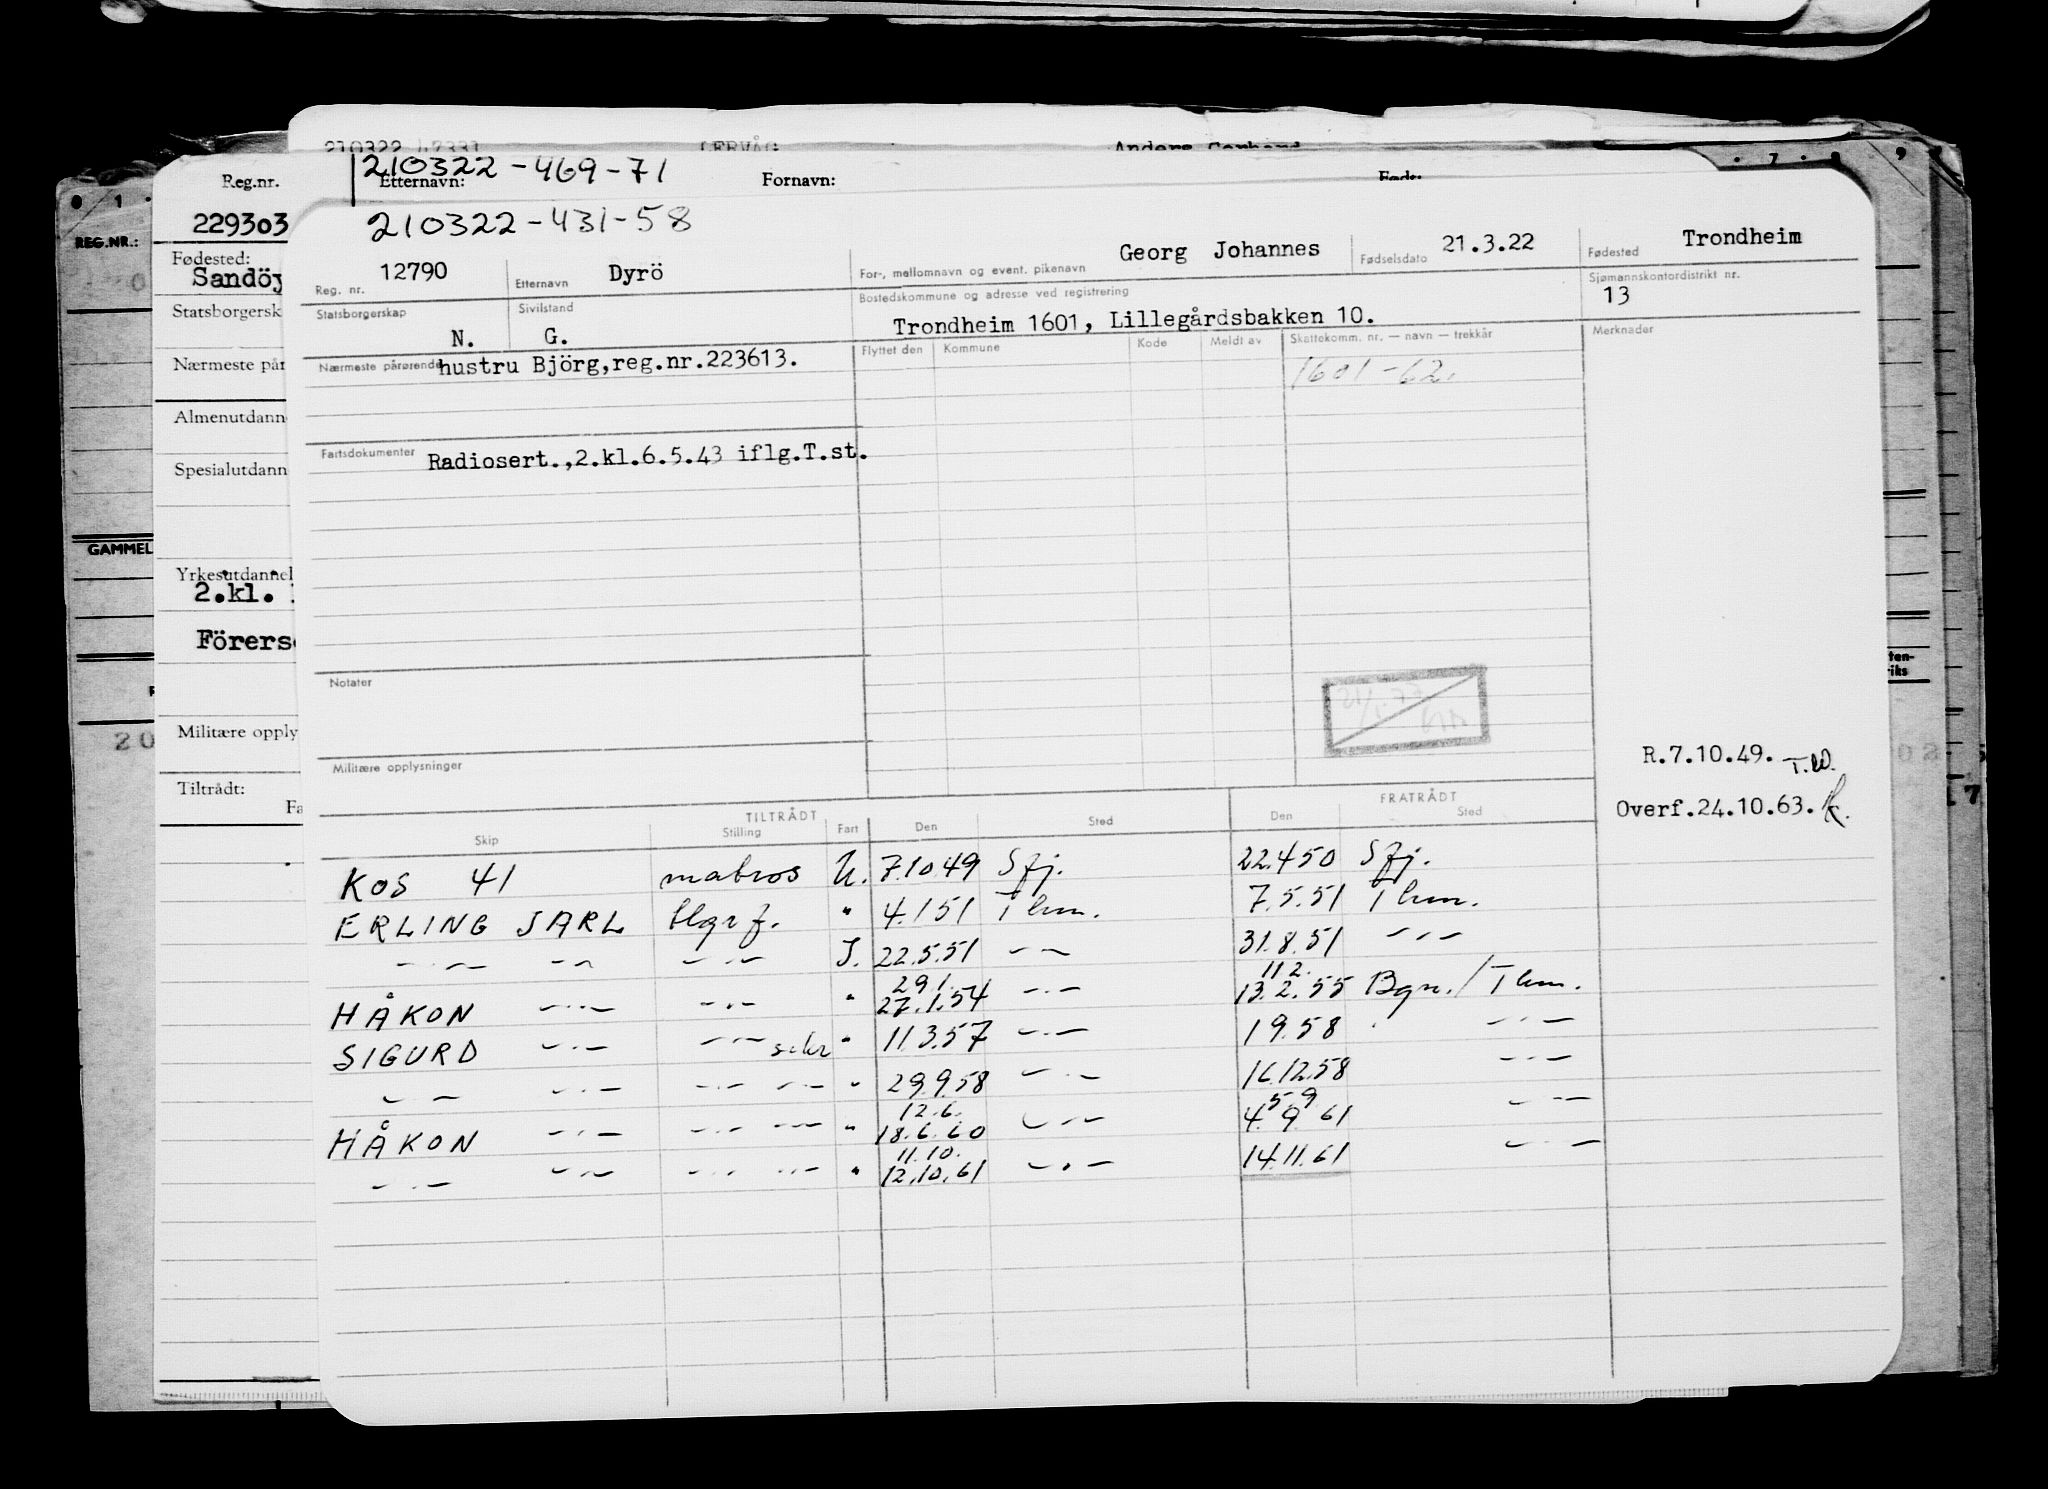 210322 47331 LERVÅG Anders Gerhard
210322-469-71
Reg.nr. Etternavn: Fornavn: Født:
229303
REG.NR.:
Fødested:
Sandöy
Statsborgersk
Nærmeste pår
Almenutdann
Spesialutdann
GAMMEL
Yrkesutdannel
2.kl.
Förers
Militære opply
Tiltrådt:
Fa
210322-431-58
Reg. nr. 12790 Etternavn Dyrö For-, mellomnavn og event. pikenavn Georg Johannes Fødselsdato 21.3.22 Fødested Trondheim
Statsborgerskap N. Sivilstand G. Bostedskommune og adresse ved registrering Trondheim 1601, Lillegårdsbakken 10. Sjømannskontordistrikt nr. 13
Nærmeste pårørende hustru Björg,reg.nr.223613. Flyttet den Kommune Kode Meldt av Skattekomm. nr. — navn — trekkår Merknader
1601-62.
Fartsdokumenter Radiosert.,2.kl.6.5.43 iflg.T.st.
Notater
Militære opplysninger
R.7.10.49. T.W.
Overf.24.10.63.
TILTRÅDT FRATRÅDT
Skip Stilling Fart Den Sted Den Sted
KOS 41 matros U. 7.10 49 Sfj. 22.4 50 Sfj.
ERLING JARL tlgrf. " 4.1 51 Thm. 7.5.51 Thm.
—"— —"— —"— I. 22.5.51 —"— 31.8.51 —"—
29.1. 11.2.
HÅKON —"— —"— " 27.1.54 —"— 13.2.55 Bgn./Thm.
SIGURD —"— —"— sekr " 11.3.57 —"— 1 9.58 —"—
—"— —"— —"— —"— " 29.9.58 —"— 16.12.58 —"—
12.6. 5.9
HÅKON —"— —"— —"— " 18.6.60 —"— 4.9.61 —"—
11.10.
—"— —"— —"— —"— " 12.10.61 —"— 14.11.61 —"—